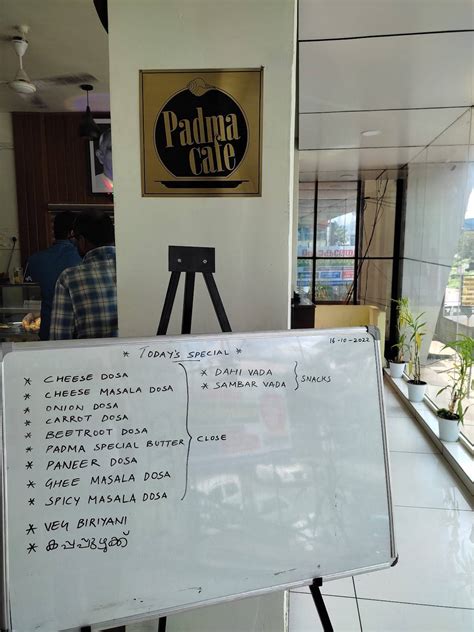 Padma
Cafe
* TODAY'S SPECIAL *
16-10-2022
* CHEESE DOSA
* CHEESE MASALA DOSA
* ONION DOSA
* CARROT DOSA
* BEETROOT DOSA
* PADMA SPECIAL BUTTER
* PANEER DOSA
* GHEE MASALA DOSA
* SPICY MASALA DOSA
CLOSE
* VEG BIRIYANI
* കപ്പപ്പുഴുക്ക്
* DAHI VADA
* SAMBAR VADA
SNACKS